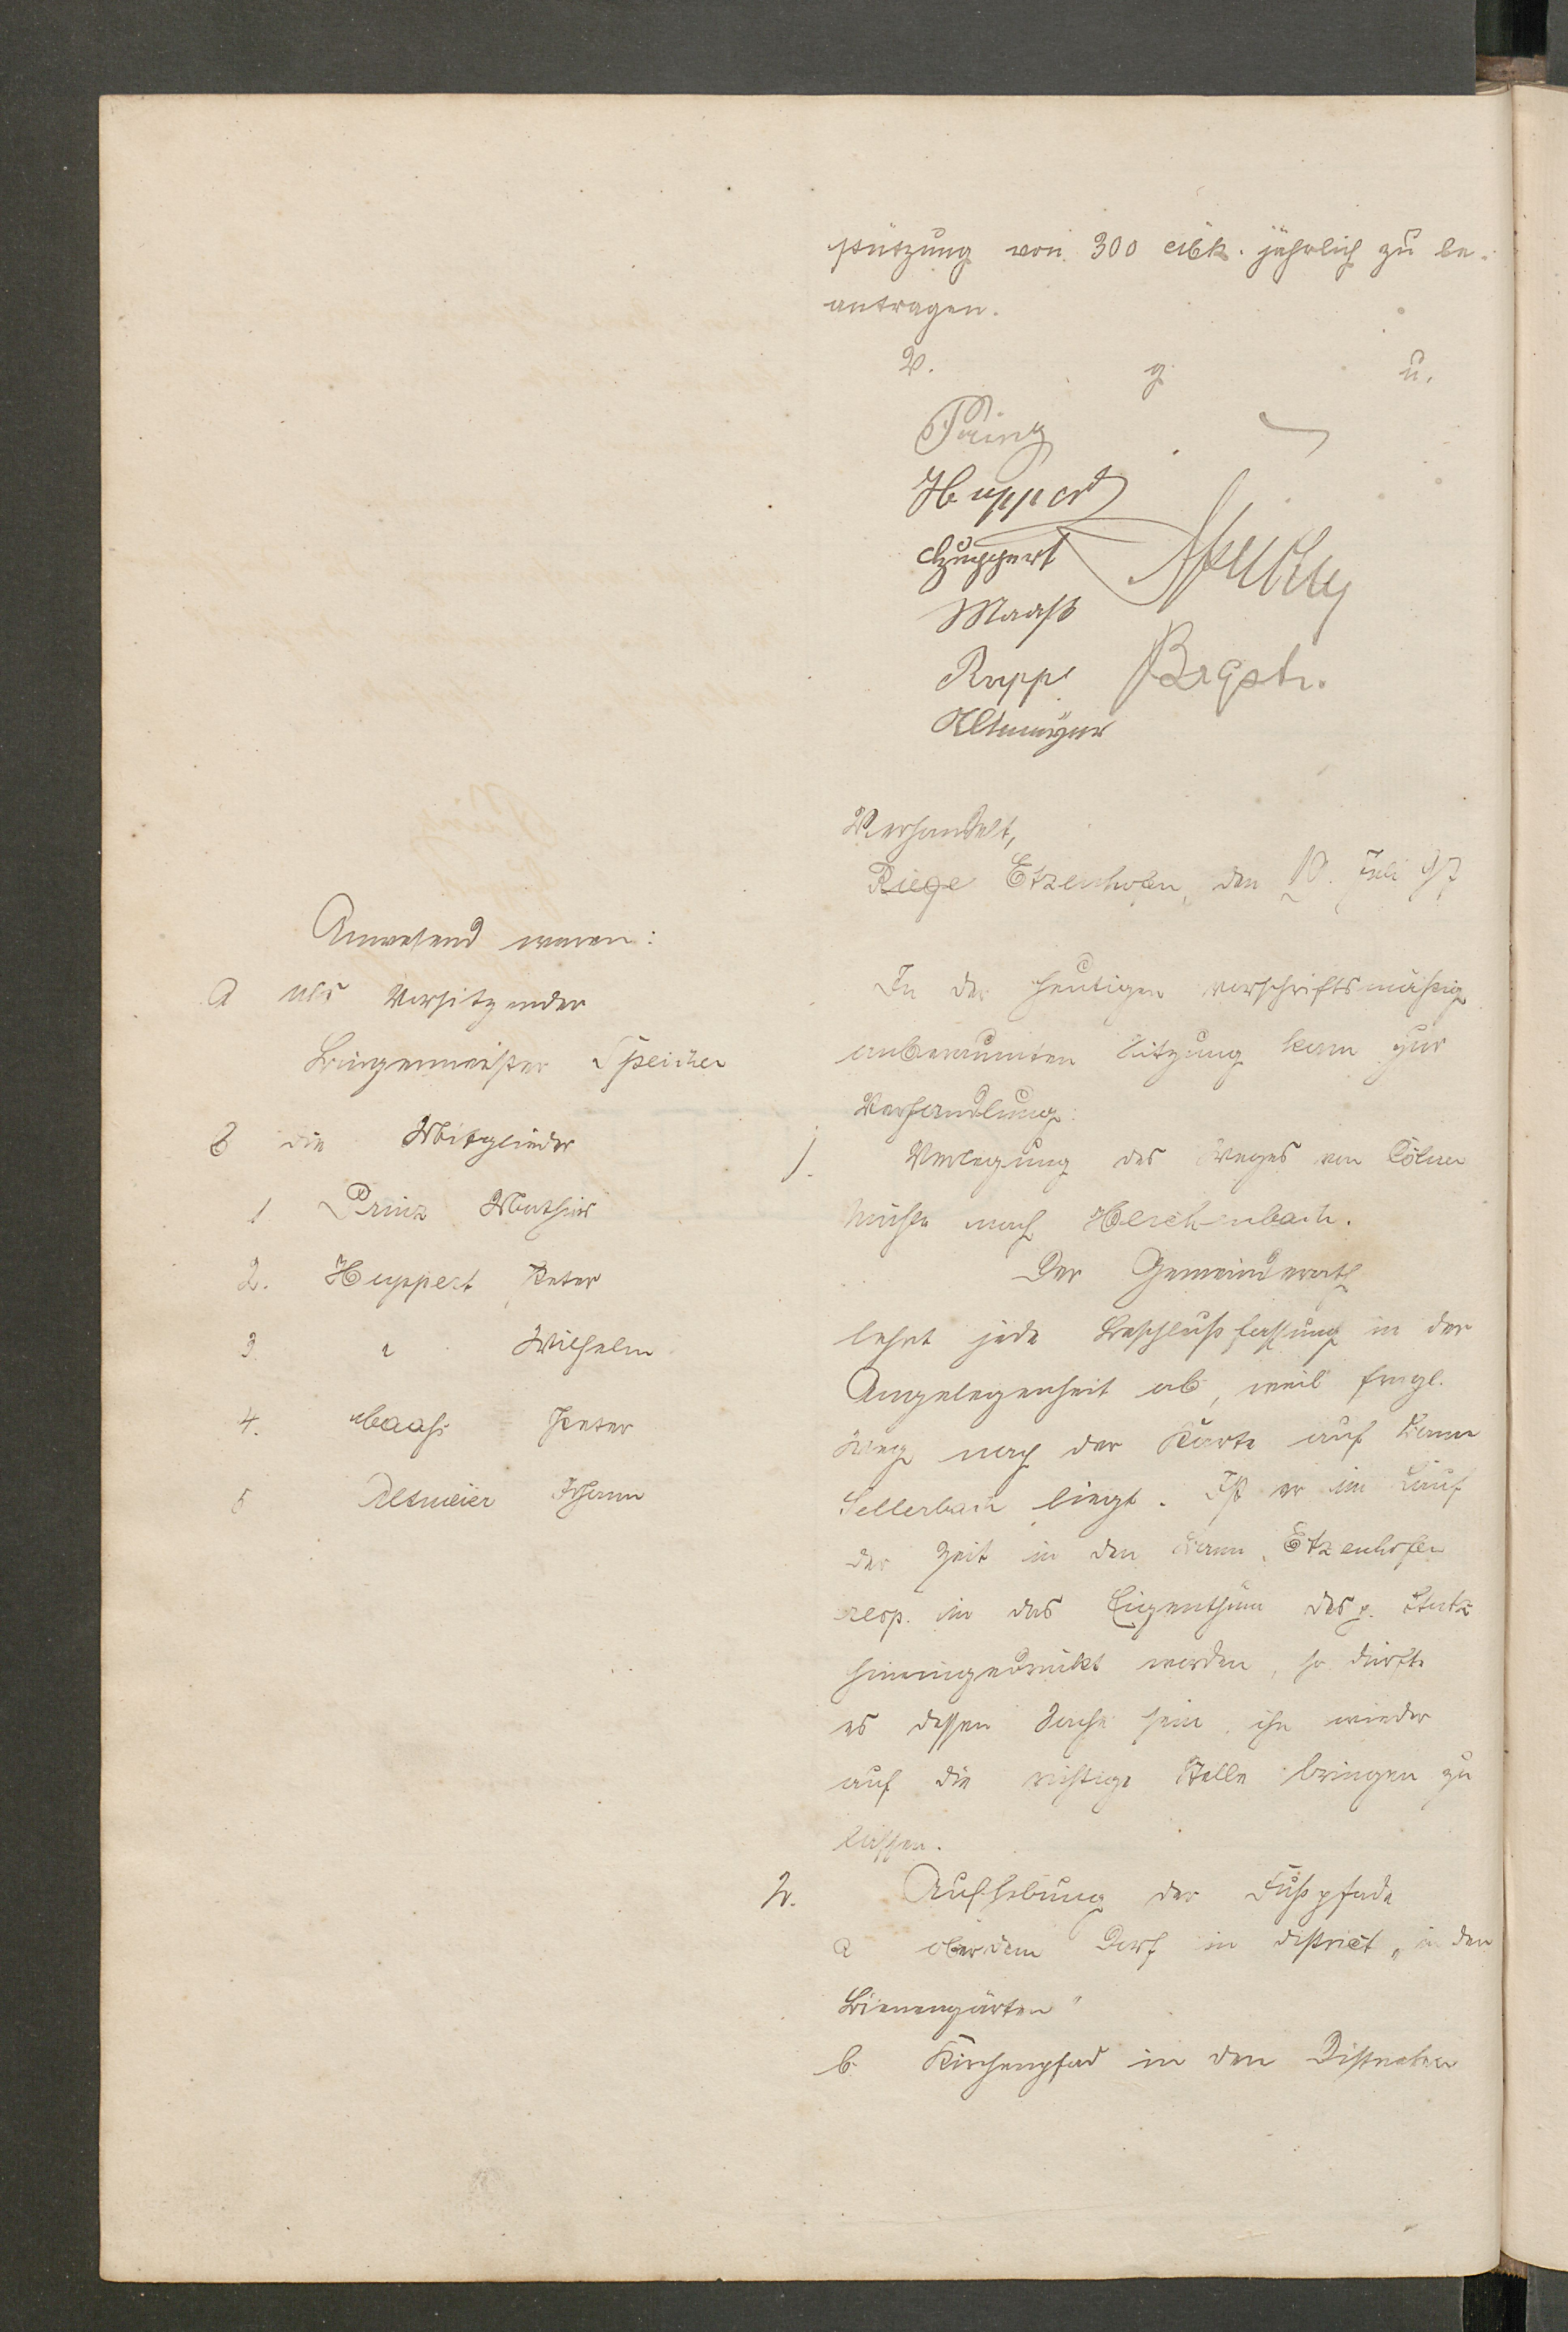 stützung von 300 Mk. jährlich zu be-
antragen.
V. g. u.
Prinz
Huppert
Huppert
Maaß
Rapp
Altmeyer
Speicher
Brgstr.
Verhandelt,
Etzenhofen, den 10. Juli 97
Anwesend waren:
a als Vorsitzender
Bürgermeister Speicher
b die Mitglieder
1 Prinz Mathias
2. Huppert Peter
3. " Wilhelm
4. Maaß Peter
5 Altmeier Johann
In der heutigen vorschriftsmäßig
anberaumten Sitzung kam zur
Verhandlung:
1. Verlegung des Weges von Cölner
Mühle nach Herchenbach.
Der Gemeinderath
lehnt jede Beschlußfassung in der
Angelegenheit ab, weil fragl.
Weg nach der Karte auf Bann
Sellerbach liegt. Ist er im Lauf
der Zeit in den Bann Etzenhofen
resp. in das Eigenthum des p.
hineingedrückt worden, so dürfte
es dessen Sache sein, ihn wieder
auf die richtige Stelle bringen zu
lassen.
2. Aufhebung der Fußpfade
a ober dem Dorf im District „in den
Bienengärten"
b. Kirchenpfad in den Distrikten